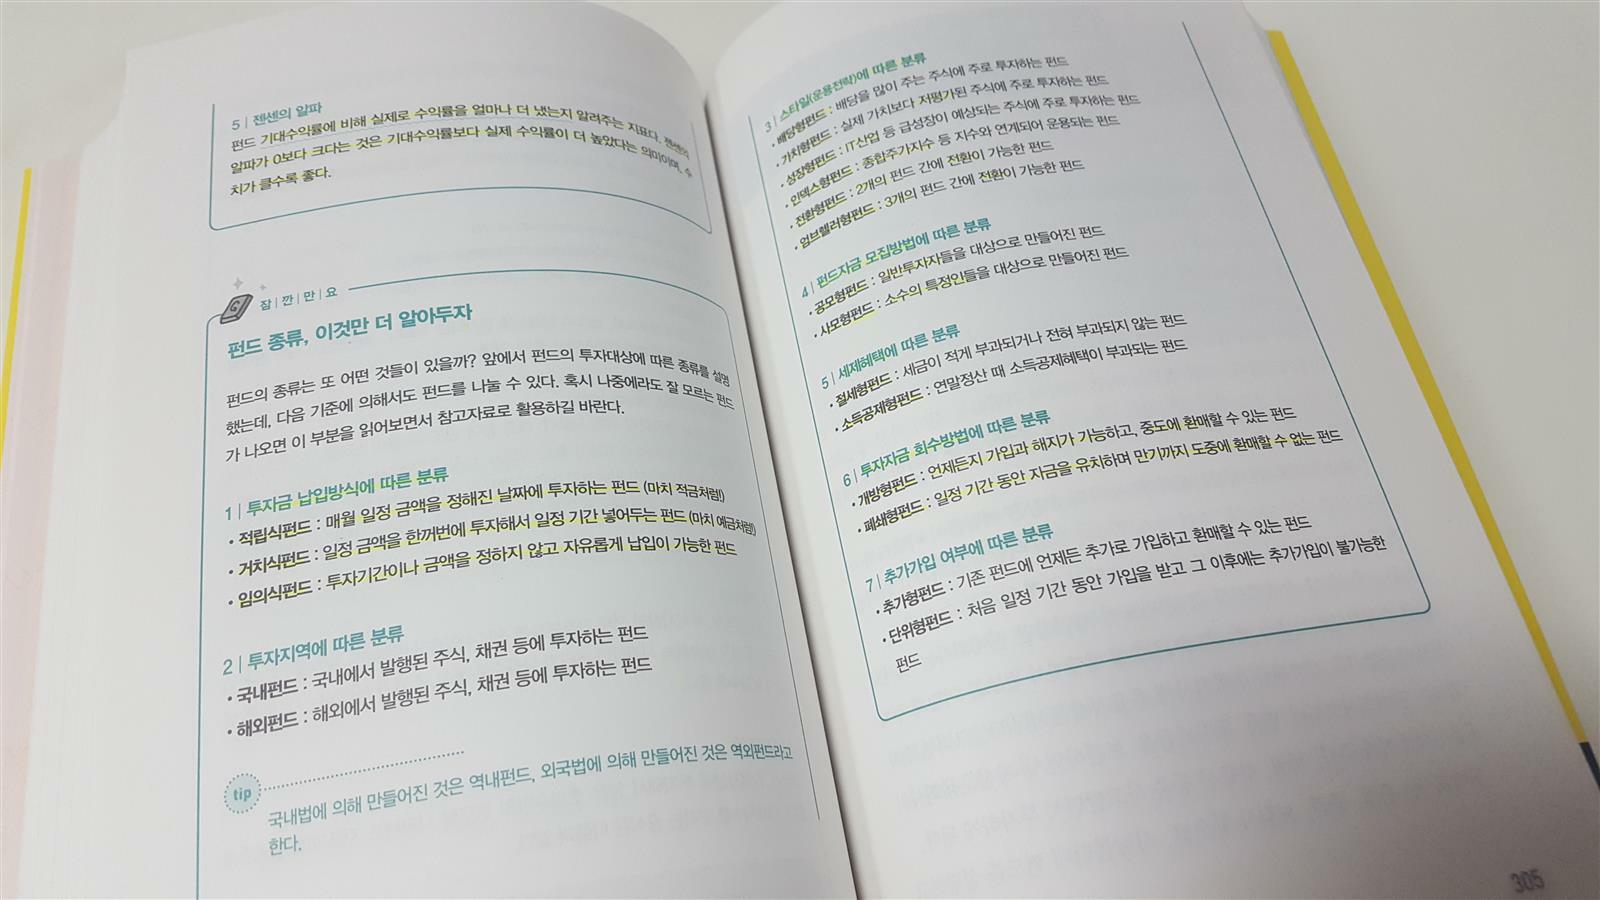 5 | 젠센의 알파
펀드 기대수익률에 비해 실제로 수익률을 얼마나 더 냈는지 알려주는 지표다. 젠센의
알파가 0보다 크다는 것은 기대수익률보다 실제 수익률이 더 높았다는 의미이며, 수
치가 클수록 좋다.
잠|깐|만|요
펀드 종류, 이것만 더 알아두자
펀드의 종류는 또 어떤 것들이 있을까? 앞에서 펀드의 투자대상에 따른 종류를 설명
했는데, 다음 기준에 의해서도 펀드를 나눌 수 있다. 혹시 나중에라도 잘 모르는 펀드
가 나오면 이 부분을 읽어보면서 참고자료로 활용하길 바란다.
1 | 투자금 납입방식에 따른 분류
• 적립식펀드 : 매월 일정 금액을 정해진 날짜에 투자하는 펀드 (마치 적금처럼!)
• 거치식펀드 : 일정 금액을 한꺼번에 투자해서 일정 기간 넣어두는 펀드 (마치 예금처럼!)
• 임의식펀드 : 투자기간이나 금액을 정하지 않고 자유롭게 납입이 가능한 펀드
2 | 투자지역에 따른 분류
• 국내펀드 : 국내에서 발행된 주식, 채권 등에 투자하는 펀드
• 해외펀드 : 해외에서 발행된 주식, 채권 등에 투자하는 펀드
tip
국내법에 의해 만들어진 것은 역내펀드, 외국법에 의해 만들어진 것은 역외펀드라고
한다.
3 | 스타일(운용전략)에 따른 분류
• 배당형펀드 : 배당을 많이 주는 주식에 주로 투자하는 펀드
• 가치형펀드 : 실제 가치보다 저평가된 주식에 주로 투자하는 펀드
• 성장형펀드 : IT산업 등 급성장이 예상되는 주식에 주로 투자하는 펀드
• 인덱스형펀드 : 종합주가지수 등 지수와 연계되어 운용되는 펀드
• 전환형펀드 : 2개의 펀드 간에 전환이 가능한 펀드
• 엄브렐러형펀드 : 3개의 펀드 간에 전환이 가능한 펀드
4 | 펀드자금 모집방법에 따른 분류
• 공모형펀드 : 일반투자자들을 대상으로 만들어진 펀드
• 사모형펀드 : 소수의 특정인들을 대상으로 만들어진 펀드
5 | 세제혜택에 따른 분류
• 절세형펀드 : 세금이 적게 부과되거나 전혀 부과되지 않는 펀드
• 소득공제형펀드 : 연말정산 때 소득공제혜택이 부과되는 펀드
6 | 투자자금 회수방법에 따른 분류
• 개방형펀드 : 언제든지 가입과 해지가 가능하고, 중도에 환매할 수 있는 펀드
• 폐쇄형펀드 : 일정 기간 동안 자금을 유치하며 만기까지 도중에 환매할 수 없는 펀드
7 | 추가가입 여부에 따른 분류
• 추가형펀드 : 기존 펀드에 언제든 추가로 가입하고 환매할 수 있는 펀드
• 단위형펀드 : 처음 일정 기간 동안 가입을 받고 그 이후에는 추가가입이 불가능한
펀드
305